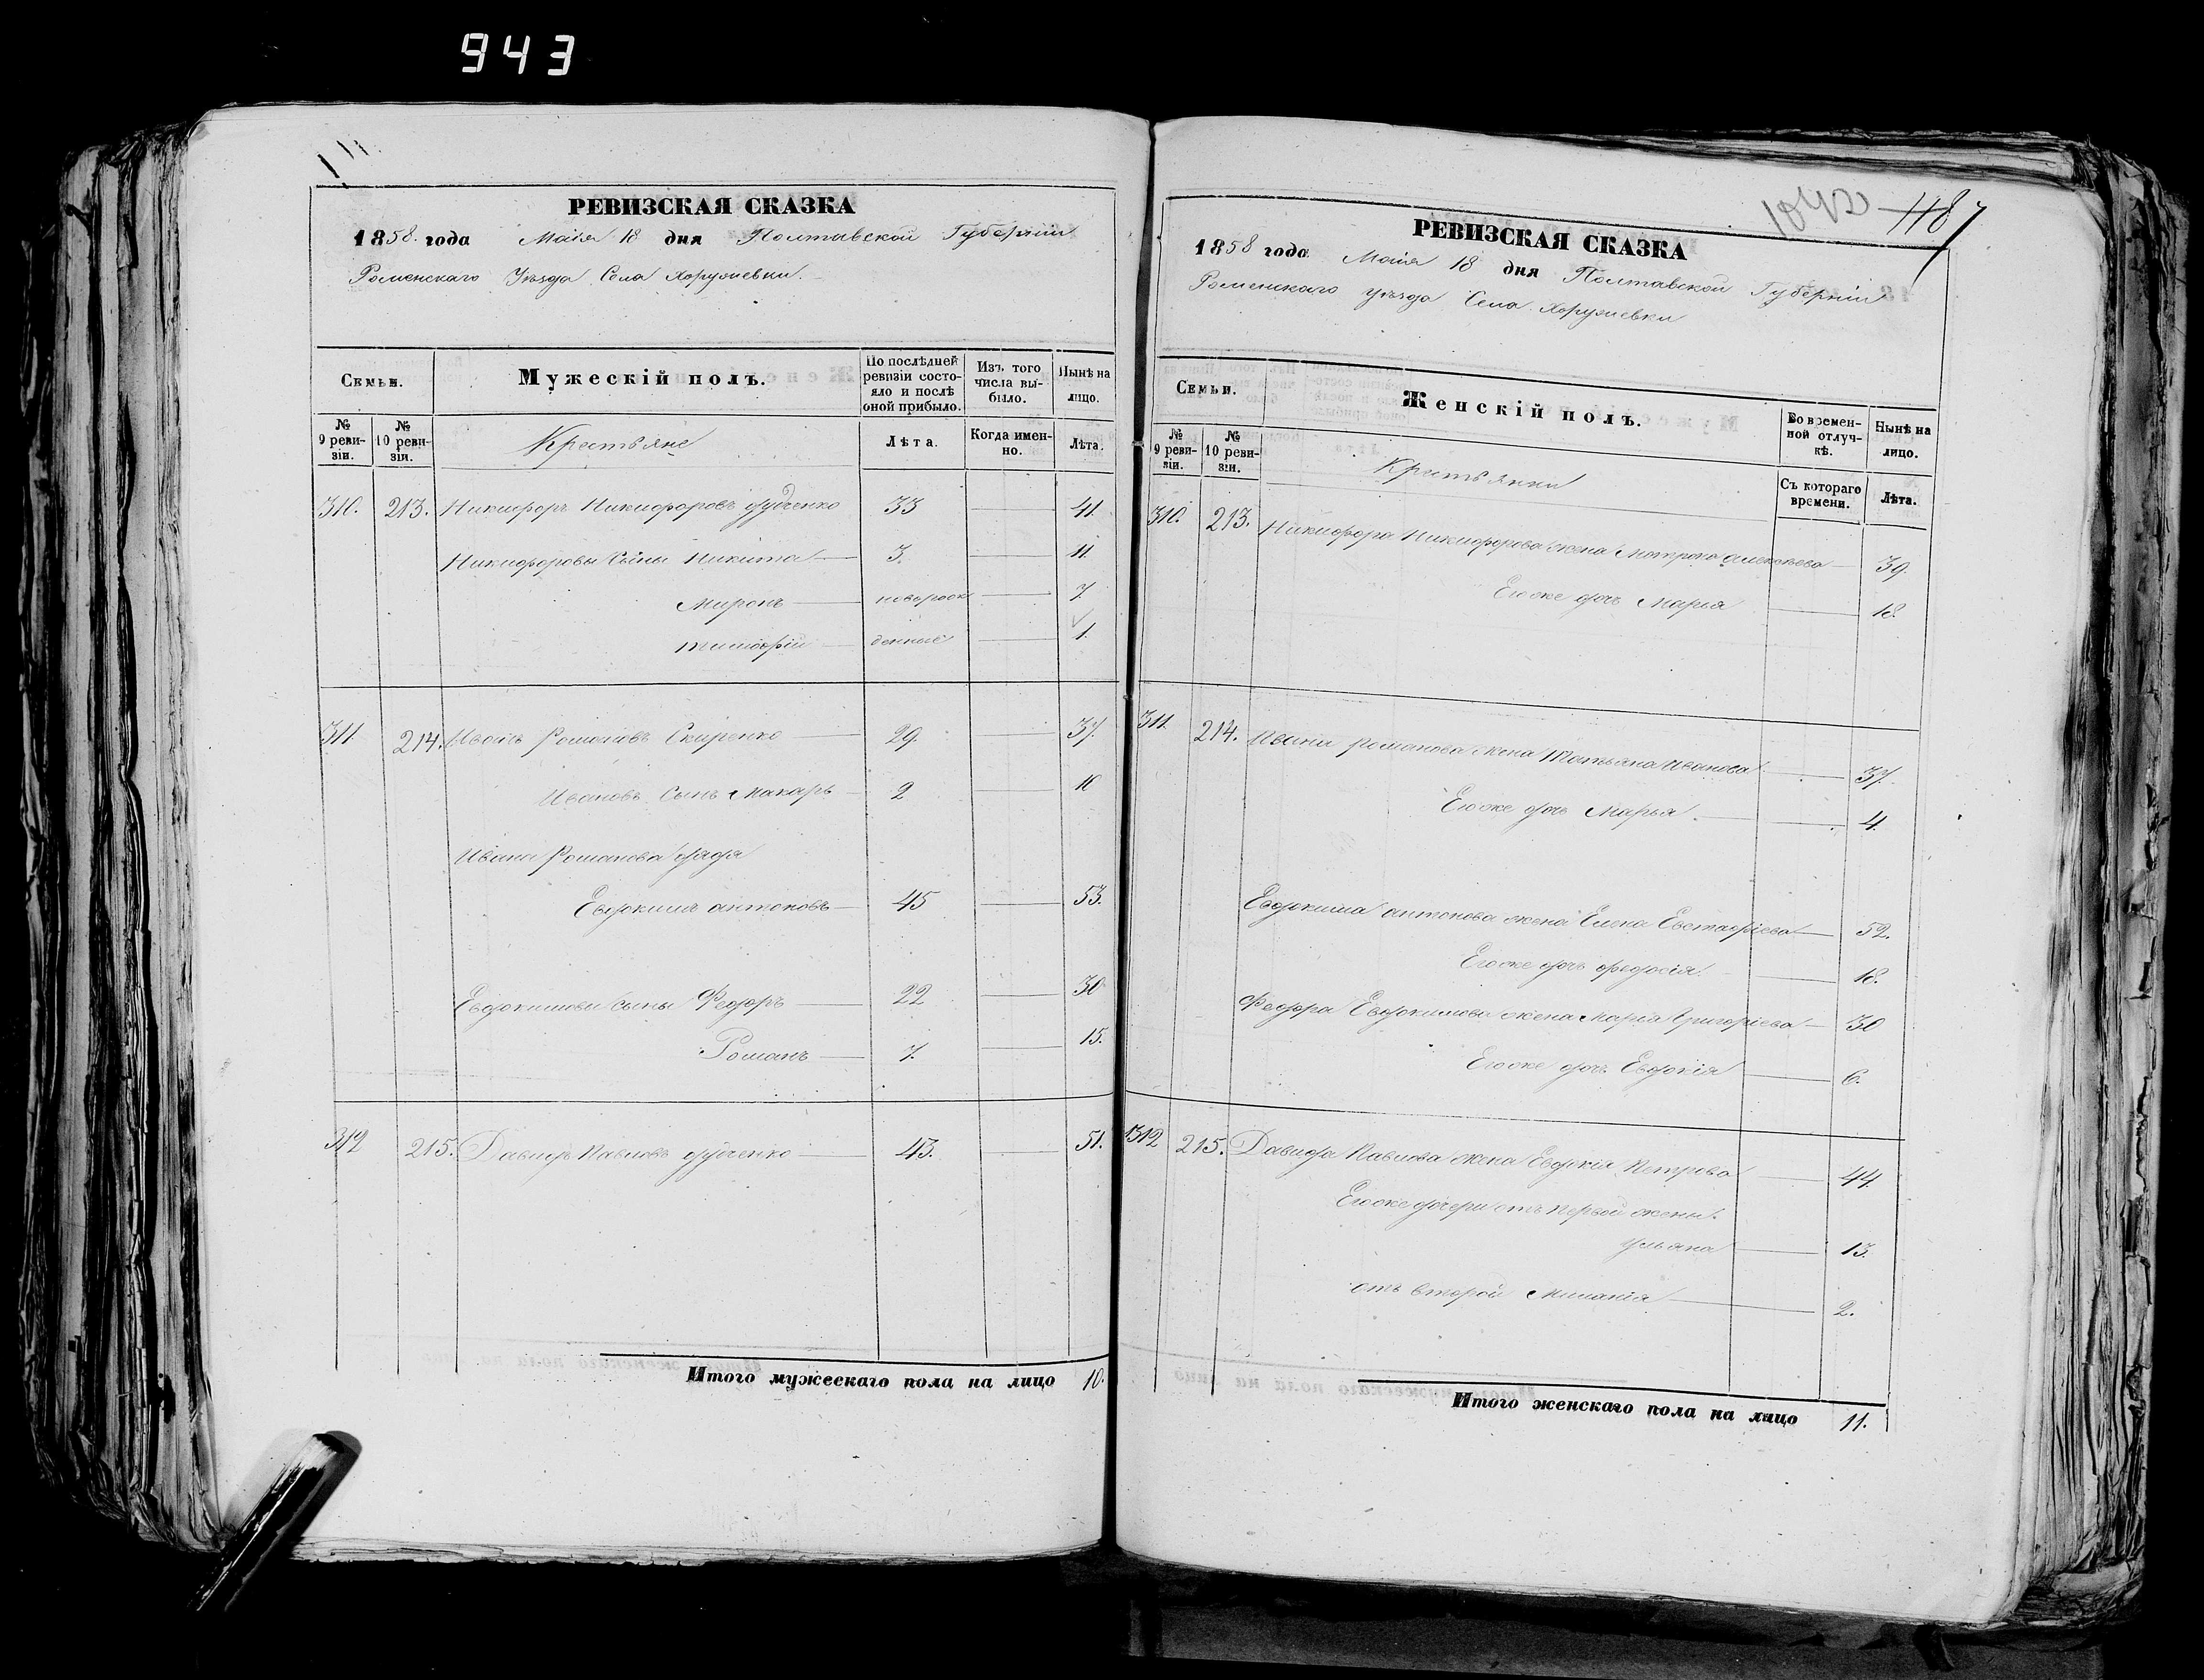 943
111.
РЕВИЗСКАЯ СКАЗКА
1858. года Маія 18 дня Полтавской Губерніи
Роменскаго Уѣзда Села Хоружевки.
Семьи.
Мужескій полъ.
По послѣдней ревизіи состояло и послѣ оной прибыло.
Изъ того числа выбыло.
Нынѣ на лицо.
№ 9 ревизіи.
№ 10 ревизіи.
Крестьяне
Лѣта.
Когда именно.
Лѣта.
310. 213. Никифоръ Никифоровъ Дудченко 33 41.
Никифоровы Сыны Никита 3. 11.
Миронъ новорож 7
Тимофѣй денные 1.
311. 214. Иванъ Романовъ Скиренко 29. 37.
Ивановъ Сынъ Макаръ 2 10
Ивана Романова дядя
Евдокимъ Антоновъ 45 53.
Евдокимовы сыны Федоръ 22 30
Романъ 7. 15.
312 215. Давидъ Павловъ Дудченко 43. 51.
Итого мужескаго пола на лицо 10.
1042 118
РЕВИЗСКАЯ СКАЗКА
1858 года Маія 18 дня Полтавской Губерніи
Роменскаго уѣзда Села Хоружевки
Семьи.
Женскій полъ.
Во временной отлучкѣ.
Нынѣ на лицо.
№ 9 ревизіи.
№ 10 ревизіи.
Крестьянки
Съ котораго времени.
Лѣта.
310. 213. Никифора Никифорова жена Матрона Алексѣева 39.
Егоже дочь Марья 18.
311. 214. Ивана Романова жена Татьяна Иванова 37.
Егоже дочь Марья. 4.
Евдокима Антонова жена Елена Евстафіева 52.
Егоже дочь Федосія. 18.
Федора Евдокимова жена Марія Григоріева 30
Егоже дочь Евдокія 6.
312 215. Давида Павлова жена Евдокія Петрова 44.
Егоже дочери отъ первой жены.
Ульяна 13.
отъ второй Миланія 2.
Итого женскаго пола на лицо 11.